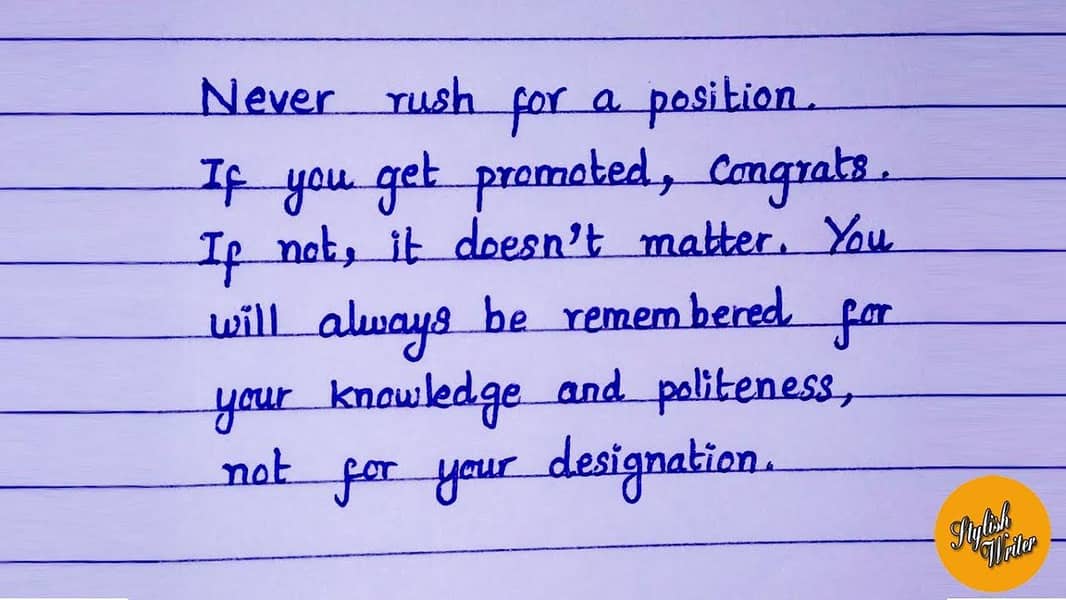 Never rush for a position.
If you get promoted, Congrats.
If not, it doesn't matter. You
will always be remembered for
your knowledge and politeness,
not for your designation.
Stylish
Writer